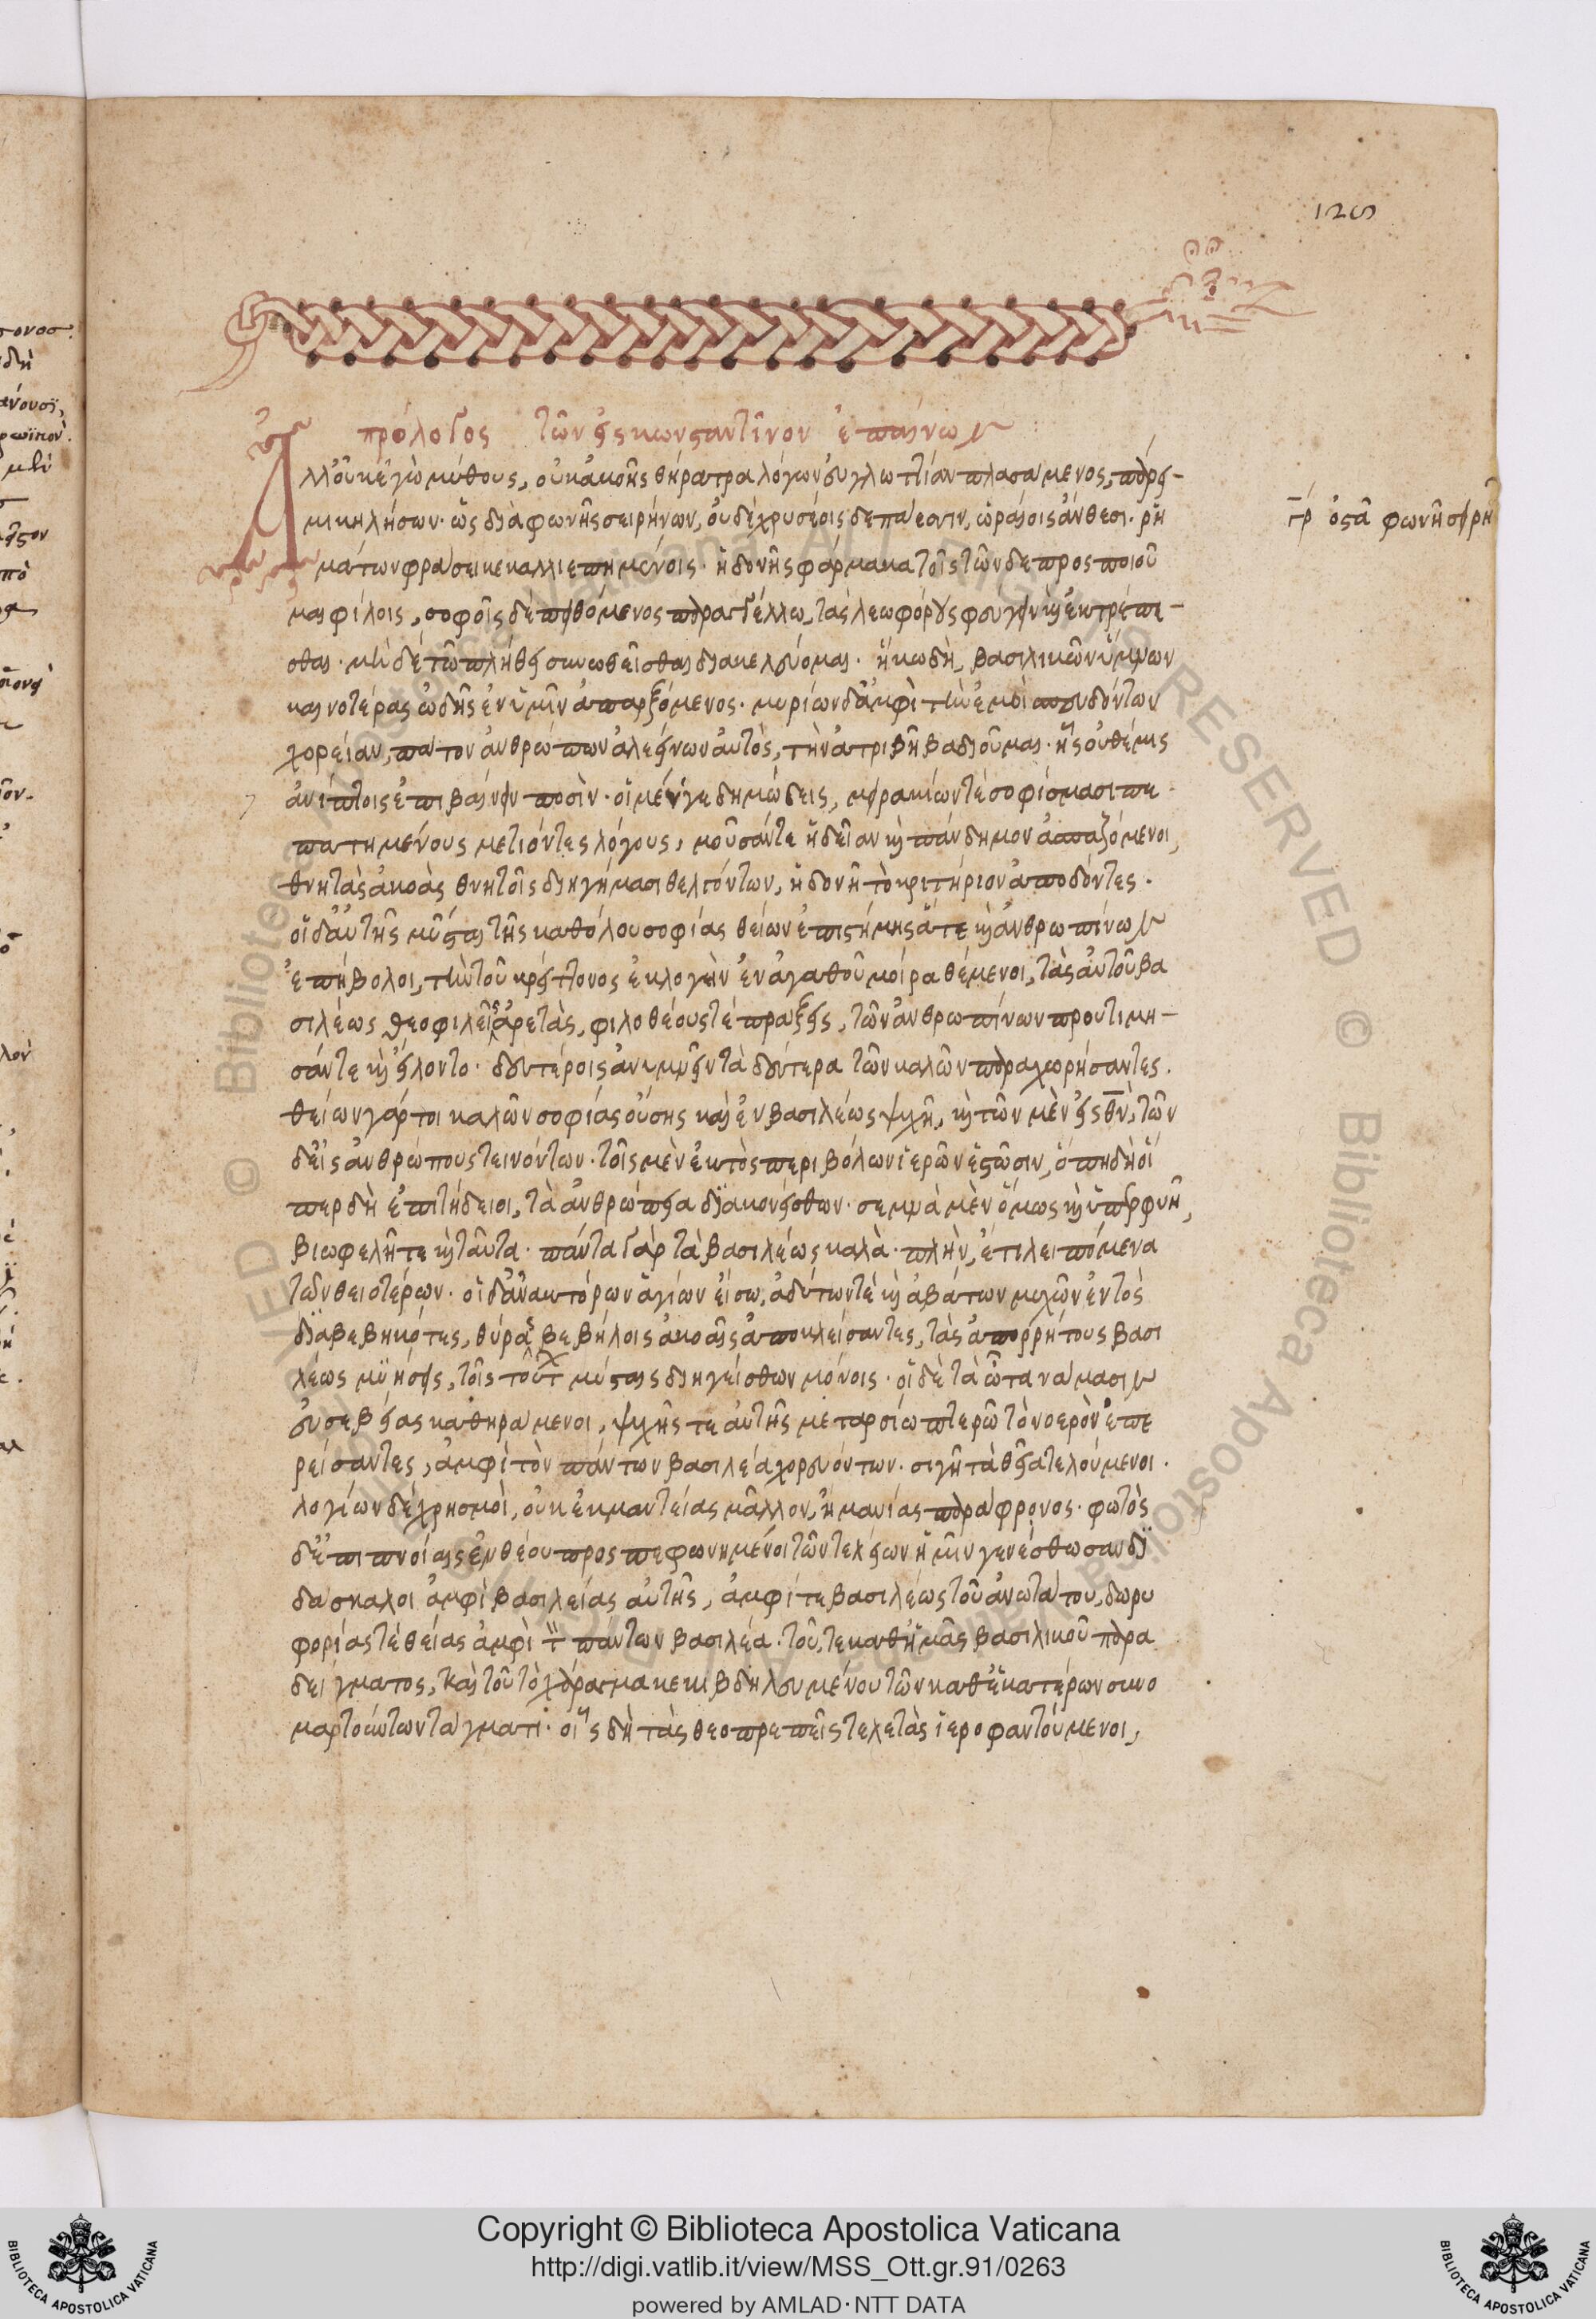 128
πρόλογος τῶν εἰς κωνσταντῖνον ἐπαίνων
Ἀλλ' οὐκ ἐγὼ μύθους, οὐκ ἀκοῆς θήρατρα λόγων εὐγλωττίαν πλασάμενος, παρεσ-
μι κηλήσων· ὡς διὰ φωνῆς σειρήνων, οὐδὲ χρυσέοις δεπάεσσιν, ὡραίοις ἄνθεσι· ῥη
μάτων φράσει κεκαλλιεπημένοις· ἡδονῆς φάρμακα τοῖς τῶνδε προσποιοῦ
μαι φίλοις, σοφοῖς δὲ πειθόμενος παραγγέλλω, τὰς λεωφόρους φεύγειν καὶ ἐκτρέπε-
σθαι· μὴ δὲ τῷ πλήθει συνωθεῖσθαι διακελεύομαι· ἥκω δὴ βασιλικῶν ὕμνων
καινοτέρας ᾠδῆς ἐν ὑμῖν ἀπαρξόμενος· μυρίων δ' ἀμφὶ τὴν ἐμοὶ σπευδόντων
χορείαν, πάτον ἀνθρώπων ἀλεείνων αὐτὸς, τὴν ἀτριβῆ βαδιοῦμαι· ἧς οὐ θέμις
ἀνίπτοις ἐπιβαίνειν ποσὶν· οἱ μέν γε δημώδεις, μειρακίων τε σοφίσμασι πε
πατημένους μετιόντες λόγους, μοῦσάν τε ἡδεῖαν καὶ πάνδημον ἀσπαζόμενοι,
θνητὰς ἀκοὰς θνητοῖς διηγήμασι θελγόντων, ἡδονῇ τὸ κριτήριον ἀποδόντες·
οἱ δ' αὐτῆς μύσται τῆς καθόλου σοφίας θείων ἐπιστήμης ἅτε καὶ ἀνθρωπίνων
ἐπήβολοι, τὴν τοῦ κρείττονος ἐκλογὴν ἐν ἀγαθοῦ μοίρᾳ θέμενοι, τὰς αὐτοῦ βα
σιλέως θεοφιλεῖς ἀρετὰς, φιλοθέους τὲ πράξεις, τῶν ἀνθρωπίνων προυτιμή-
σάν τε καὶ εἵλοντο· δευτέροις ἀνυμνεῖν τὰ δεύτερα τῶν καλῶν παραχωρήσαντες·
θείων γάρ τοι καλῶν σοφίας οὔσης κἀν βασιλέως ψυχῇ, καὶ τῶν μὲν εἰς θν̅, τῶν
δ' εἰς ἀνθρώπους τεινόντων· τοῖς μὲν ἐκτὸς περιβόλων ἱερῶν ἑστῶσιν, ὅπη δὴ οἵ
περ δὴ ἐπιτήδειοι, τὰ ἀνθρώπεια διακονείσθων· σεμνὰ μὲν ὅμως καὶ ὑπερφυῆ,
βιωφελῆ τε καὶ ταῦτα· πάντα γὰρ τὰ βασιλέως καλὰ· πλὴν, ἔτι λειπόμενα
τῶν θειοτέρων· οἱ δ' ἀνακτόρων ἁγίων εἴσω, ἀδύτων τὲ καὶ ἀβάτων μυχῶν ἐντὸς
διαβεβηκότες, θύρας βεβήλοις ἀκοαῖς ἀποκλείσαντες, τὰς ἀπορρήτους βασι
λέως μυήσεις, τοῖς τούτων μύσταις διηγείσθων μόνοις· οἱ δὲ τὰ ὦτα νάμασιν
εὐσεβείας καθηράμενοι, ψυχῆς τε αὐτῆς μεταρσίῳ πτερῷ τὸν νοερὸν ἐπε
ρείσαντες, ἀμφὶ τὸν πάντων βασιλέα χορευόντων· σιγῇ τὰ θεῖα τελούμενοι·
λογίων δὲ χρησμοὶ, οὐκ ἐκ μαντείας μᾶλλον, ἢ μανίας παράφρονος· φωτὸς
δὲ ἐπιπνοίαις ἐνθέου προσπεφωνημένοι τῶν τελείων ἡμῖν γενέσθωσαν δι
δάσκαλοι ἀμφὶ βασιλείας αὐτῆς, ἀμφί τε βασιλέως τοῦ ἀνωτάτου, δορυ
φορίας τὲ θείας ἀμφὶ τὸν πάντων βασιλέα· τοῦ τε καθ' ἡμᾶς βασιλικοῦ παρα
δείγματος, καὶ τοῦ τὸ χάραγμα κεκιβδηλευμένου τῶν καθ' ἑκατέρων συνο
μαρτούντων τάγματι· οἷς δὴ τὰς θεοπρεπεῖς τελετὰς ἱεροφαντούμενοι,
γρ
Copyright © Biblioteca Apostolica Vaticana
http://digi.vatlib.it/view/MSS_Ott.gr.91/0263
powered by AMLAD·NTT DATA
BIBLIOTECA APOSTOLICA VATICANA
BIBLIOTECA APOSTOLICA VATICANA